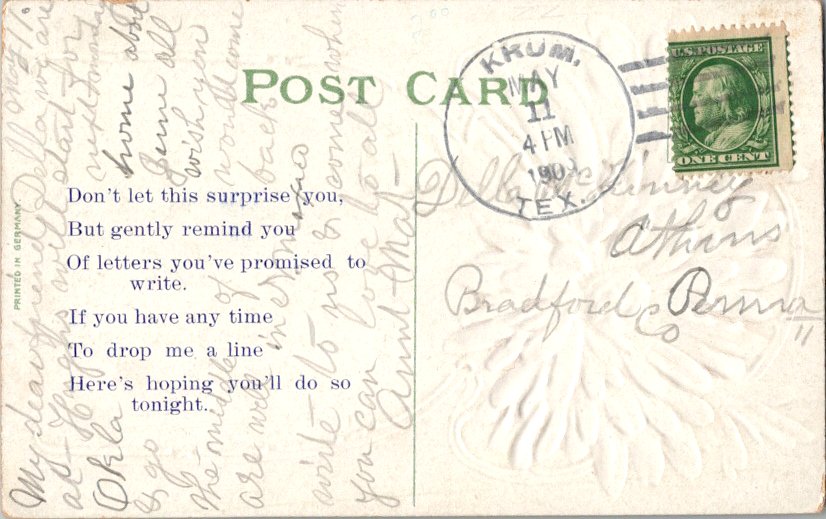 POST CARD
PRINTED IN GERMANY.
Don't let this surprise you,
But gently remind you
Of letters you've promised to
write.
If you have any time
To drop me a line
Here's hoping you'll do so
tonight.
My dear friend Della we are
at will start for
Okla next monday
& go home about
the middle of June all
are well in wish you
would come back
write to us come when
you can love to all
Aunt
KRUM.
MAY
11
4 PM
190
TEX.
U.S. POSTAGE
ONE CENT
Della McKinney
Athens
Bradford Co Penna